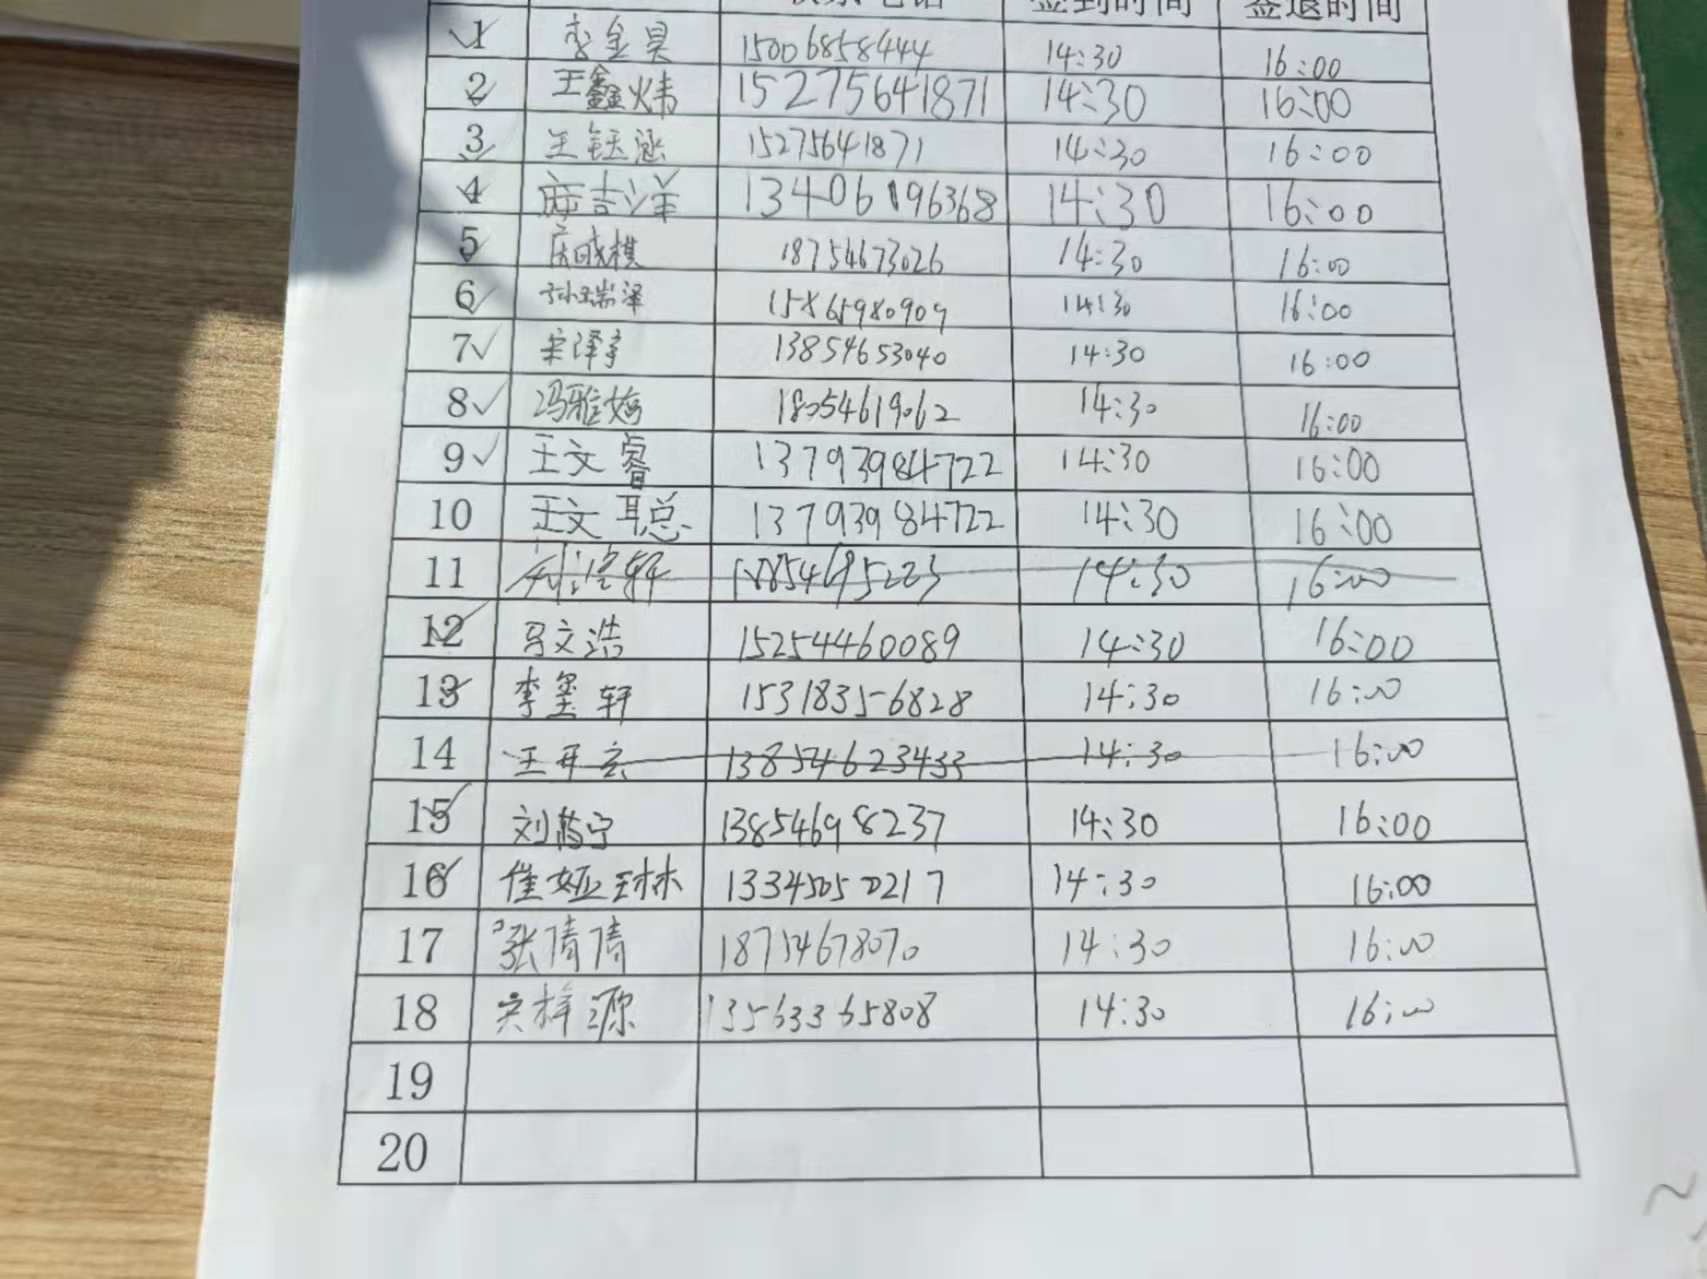 签到时间 签退时间
1 李金昊 15006858444 14:30 16:00
2 王鑫炜 15275641871 14:30 16:00
3 王钰涵 15275641871 14:30 16:00
4 麻吉洋 13406196368 14:30 16:00
5 棋 18754673026 14:30 16:00
6 孙瑞泽 15865980909 14:30 16:00
7 宋泽宇 13854653040 14:30 16:00
8 冯雅婷 18054619062 14:30 16:00
9 王文睿 13793984722 14:30 16:00
10 王文聪 13793984722 14:30 16:00
11 14:30 16:00
12 马文浩 15254460089 14:30 16:00
13 李玺轩 15318356828 14:30 16:00
14 王开玄 13854623433 14:30 16:00
15 刘芮宁 13854698237 14:30 16:00
16 崔娅琳 13345050217 14:30 16:00
17 张倩倩 18754678070 14:30 16:00
18 宋梓源 13563365808 14:30 16:00
19
20